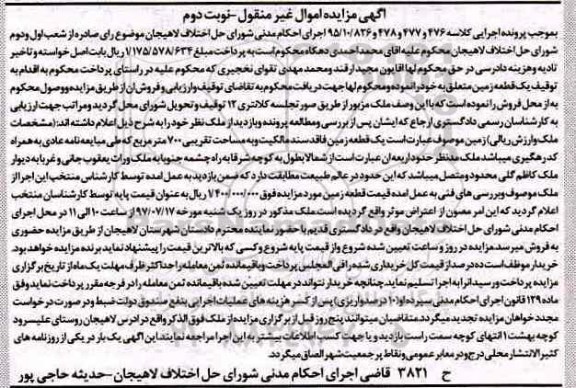 آگهی مزایده اموال غیر منقول -نوبت دوم
بموجب پرونده اجرایی کلاسه ۴۷۶ و ۴۷۷ و ۴۷۸ و ۹۵/۱۰/۸۳۶ اجرای احکام مدنی شورای حل اختلاف لاهیجان موضوع رای صادره از شعب اول و دوم
شورای حل اختلاف لاهیجان محکوم علیه اقای محمد احمدی دهکاه محکوم است به پرداخت مبلغ ۱/۱۷۵/۵۷۸/۶۳۴ ریال بابت اصل خواسته و تاخیر
تادیه و هزینه دادرسی در حق محکوم لها اقایون مجید ارقند و محمد مهدی تقوای نخجیری که محکوم علیه در راستای پرداخت محکوم به اقدام به
توقیف یک قطعه زمین متعلق به خود را نموده و محکوم لها جهت دریافت محکوم به تقاضای توقیف و ارزیابی و فروش ان از طریق مزایده و وصول محکوم
به از محل فروش را نموده است که با این وصف ملک مزبور از طریق صورتجلسه کلانتری ۱۲ توقیف و تحویل شورای محل گردید و مراتب جهت ارزیابی
به کارشناسان رسمی دادگستری ارجاع که ایشان پس از بررسی و مطالعه پرونده و بازدید از ملک نظر خود را به شرح ذیل اعلام داشته اند:(مشخصات
ملک و ارزش ریالی) زمین موصوف عبارت است یک قطعه زمین فاقد سند مالکیت و به مساحت تقریبی ۷۰۰ متر مربع که طی مبایعه نامه عادی به همراه
کد رهگیری میباشد ملک مدنظر حدود اربعه ان عبارت است از شمالا بطول به کوچه شرقا به راه چشمه جنوبا به ملک وراث یعقوب جانی و غربا به دیوار
ملک کاظم گلی محدود و متصل میباشد که این حدود در عالم طبیعت مطابقت دارد که ضمن بازدید به عمل امده توسط کارشناس منتخب این اجرا از
ملک موصوف و بررسی های فنی به عمل امده قیمت قطعه زمین مورد مزایده فوق ۱/۴۰۰/۰۰۰/۰۰۰ ریال به عنوان قیمت پایه توسط کارشناسان منتخب
اعلام گردید که این امر مصون از اعتراض موثر واقع گردیده است ملک مذکور در روز یک شنبه مورخه ۹۷/۰۷/۱۷ از ساعت ۱۰ الی ۱۱ در محل اجرای
احکام مدنی شورای حل اختلاف لاهیجان واقع در دادگستری قدیم با حضور نماینده محترم دادستان شهرستان لاهیجان از طریق مزایده حضوری
به فروش میرسد مزایده در روز و ساعت تعیین شده شروع و از قیمت پایه شروع و کسی که بالاترین قیمت را پیشنهاد نماید برنده مزایده خواهد بود.
خریدار موظف است ده درصد از قیمت کل خریداری شده را فی المجلس پرداخت و باقیمانده ثمن معامله را حداکثر ظرف مهلت یک ماه از تاریخ برگزاری
مزایده پرداخت و رسید انرا به اجرا تسلیم نماید چنانچه خریدار نتواند در مهلت تعیین شده باقیمانده ثمن معامله را در فرجه مقرر پرداخت نماید وفق
ماده ۱۲۹ قانون اجرای احکام مدنی سپرده او(۱۰ درصد واریزی) پس از کسر هزینه های عملیات اجرایی بنفع صندوق دولت ضبط و در صورت درخواست
مجدد خواهان مزایده تجدید میگردد متقاضیان میتوانند پنج روز قبل از برگزاری مزایده از ملک فوق الذکر واقع در ادرس لاهیجان روستای علیسرود
کوچه بهشت ۱ انتهای کوچه سمت راست بازدید و یا جهت کسب اطلاعات بیشتر به این اجرا مراجعه نمایند این آگهی یک بار در یکی از روزنامه های
کثیر الانتشار محلی درج و در معابر عمومی و نقاط پر جمعیت شهر الصاق میگردد.
ح ۳۸۲۱ قاضی اجرای احکام مدنی شورای حل اختلاف لاهیجان-حدیثه حاجی پور